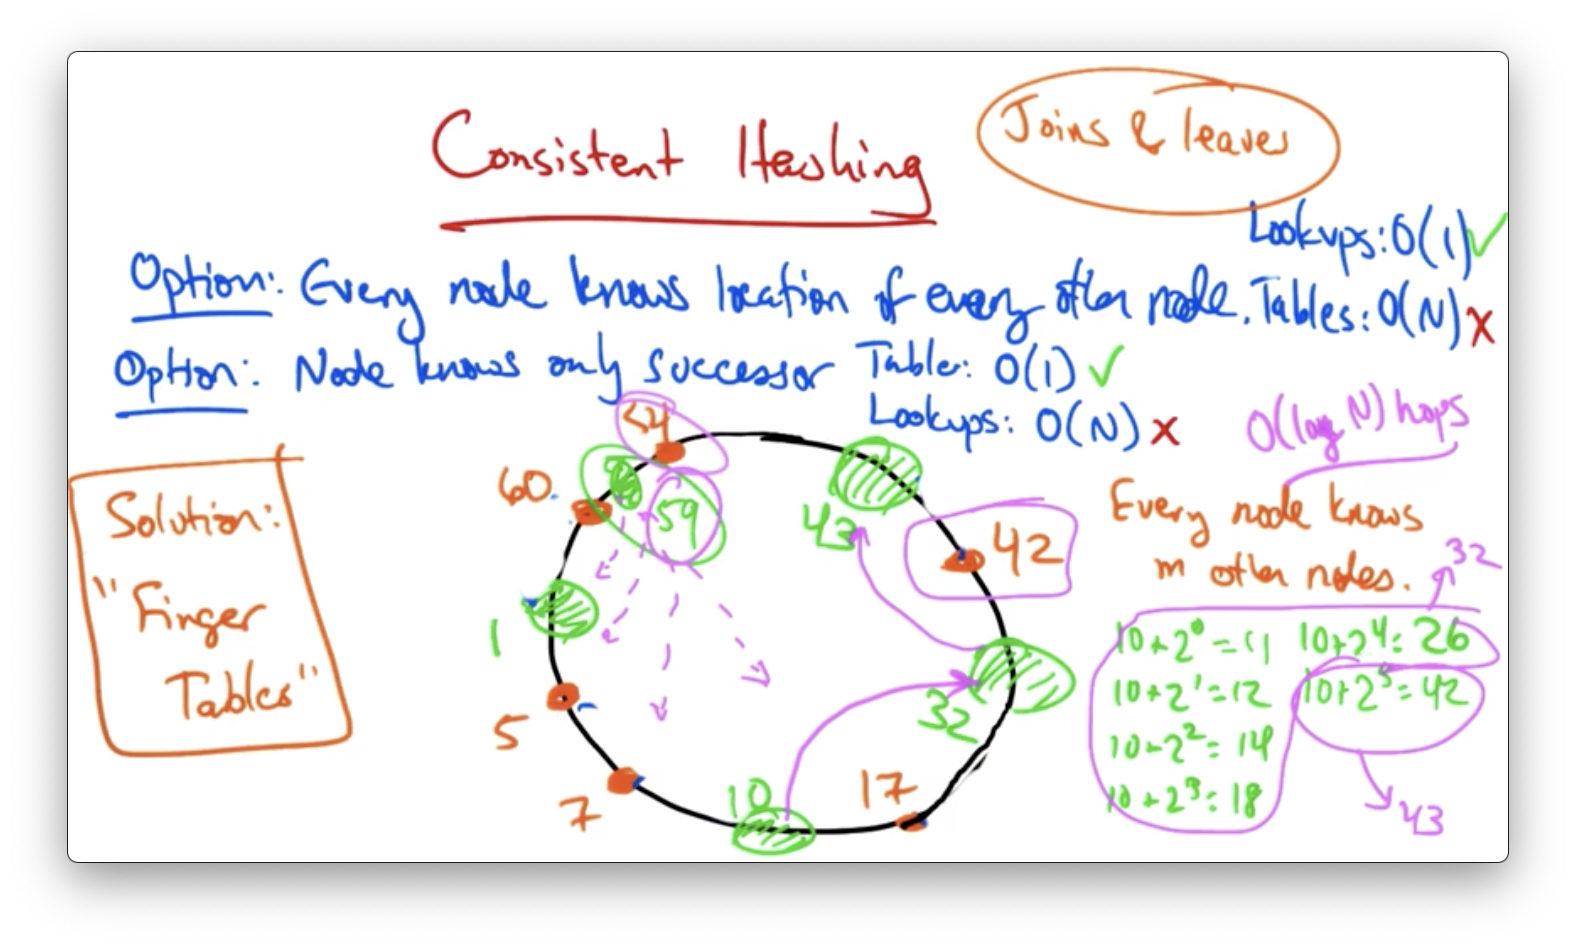 Consistent Hashing
Joins & leaves
Lookups: O(1) ✓
Option: Every node knows location of every other node. Tables: O(N) X
Option: Node knows only successor Table: O(1) ✓
Lookups: O(N) X
O(log N) hops
Solution:
"Finger
Tables"
54
60
59
43
42
1
32
5
7
10
17
Every node knows
m other nodes.
32
10+2⁰=11 10+2⁴=26
10+2¹=12 10+2⁵=42
10+2²=14
10+2³=18
43